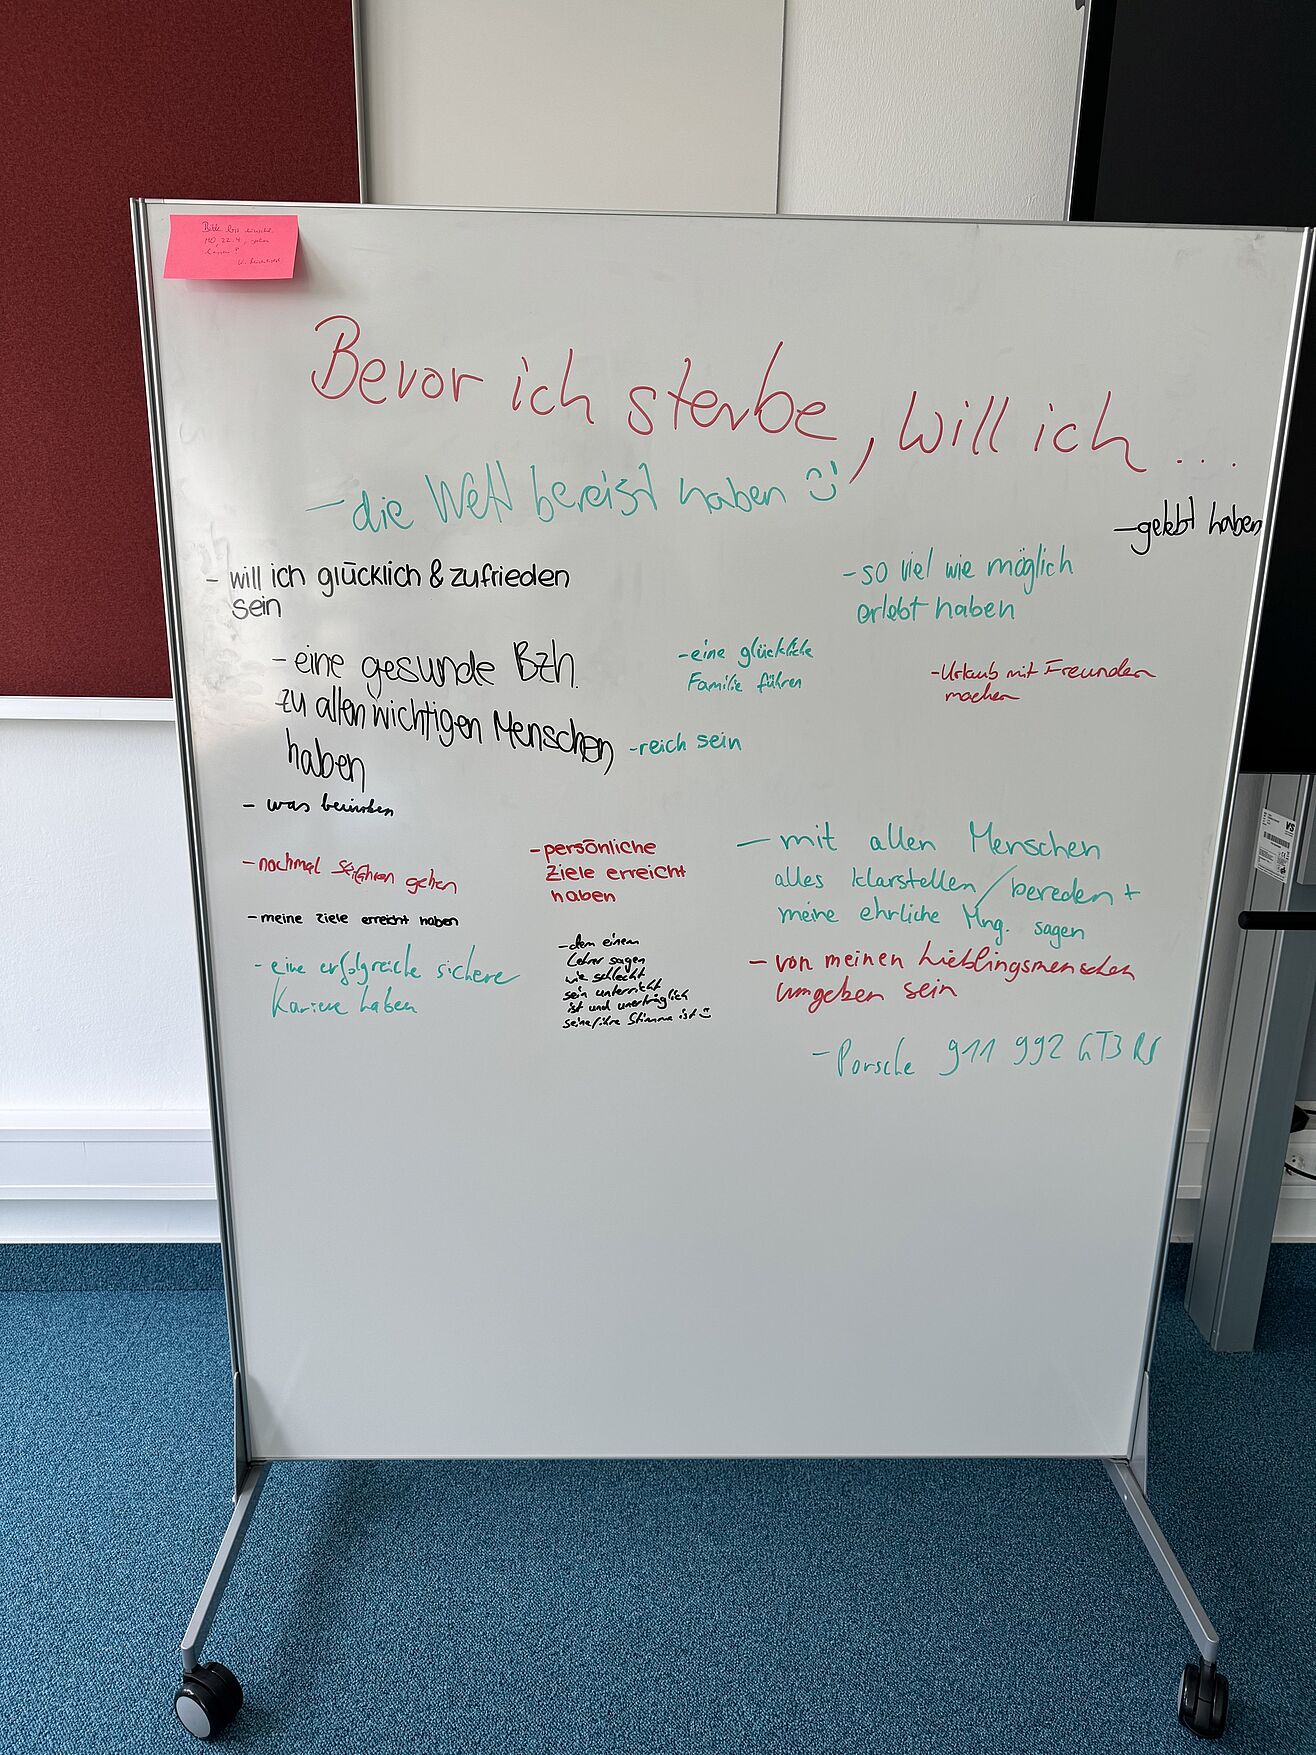 Bitte bis
MO, 22.4.,
Bevor ich sterbe, will ich ...
- die Welt bereist haben
- gelebt haben
- will ich glücklich & zufrieden
sein
- so viel wie möglich
erlebt haben
- eine gesunde Bzh.
zu allen wichtigen Menschen
haben
- eine glückliche
Familie führen
- Urlaub mit Freunden
machen
- reich sein
- was bewirken
- mit allen Menschen
alles klarstellen / bereden +
meine ehrliche Mng. sagen
- persönliche
Ziele erreicht
haben
- nochmal gehen
- meine Ziele erreicht haben
- eine erfolgreiche sichere
Karriere haben
- dem einem
Lehrer sagen
wie schlecht
sein unterricht
ist und unerträglich
seine/ihre Stimme ist
- von meinen Lieblingsmenschen
umgeben sein
- Porsche 911 992 GT3 RS
VS